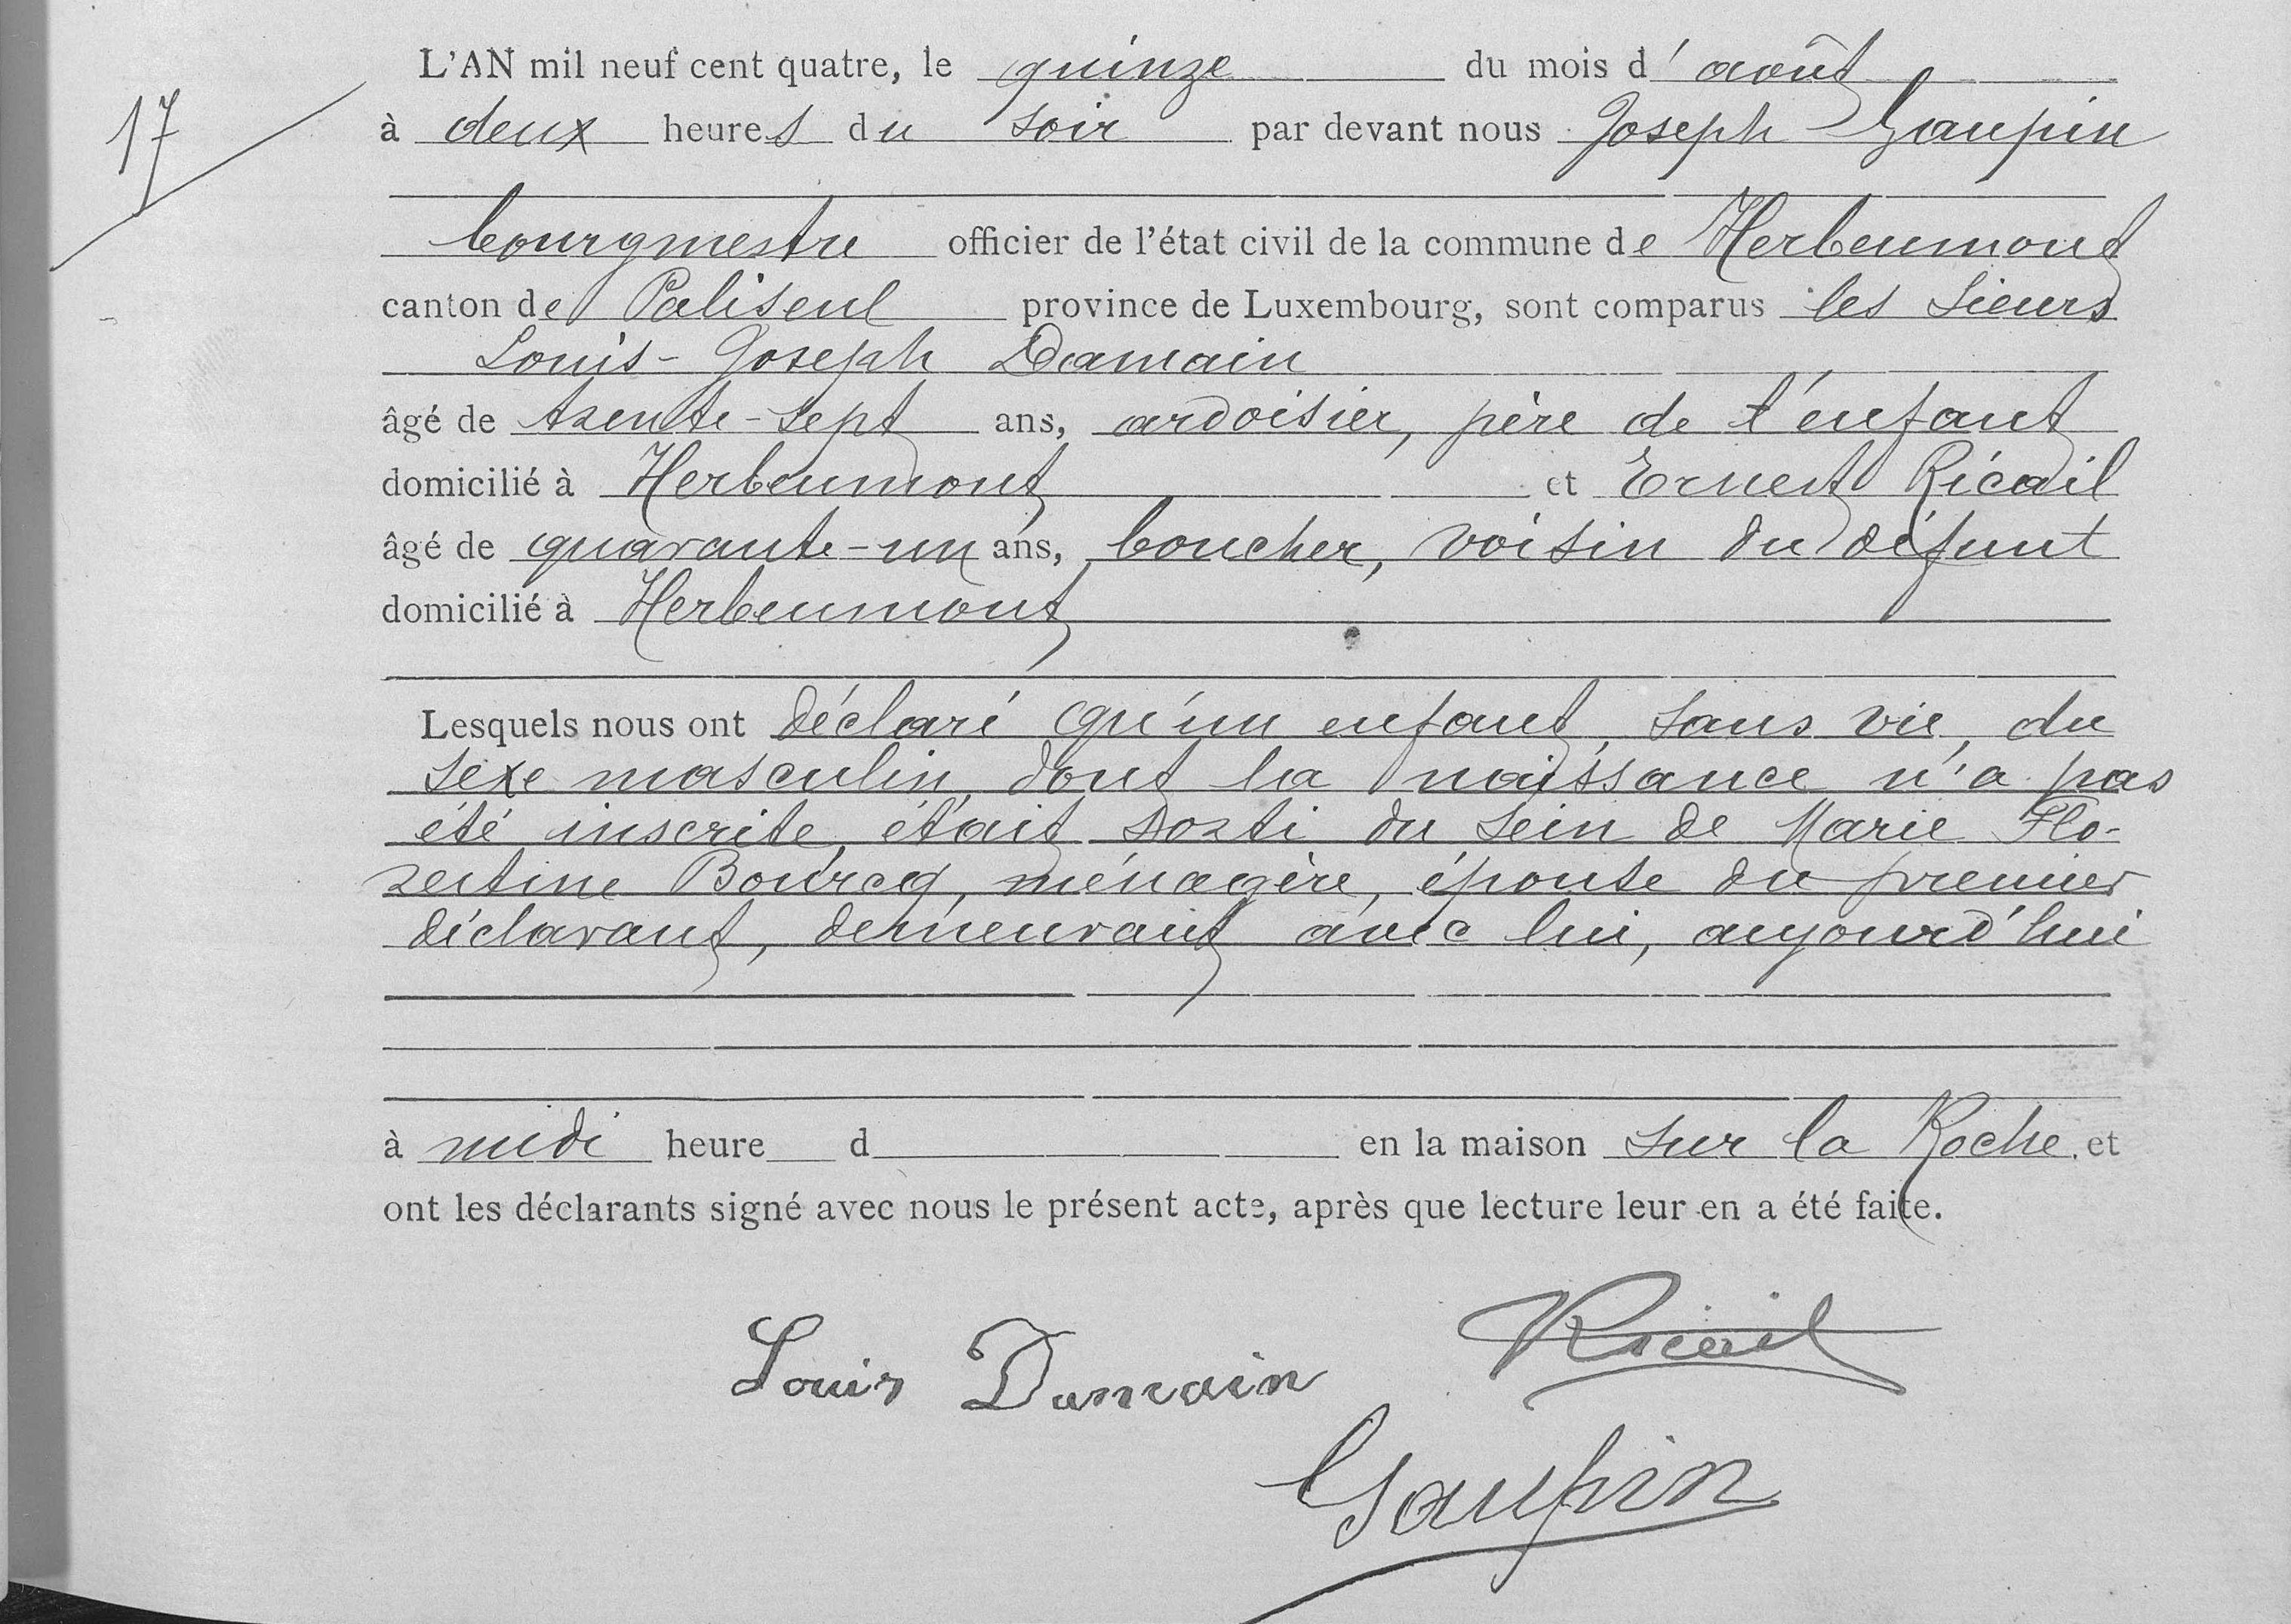 L'AN mil neuf cent quatre, le quinze du mois d'août
17
à deux heures du soir par devant nous Joseph Gaupin
bourgmestre officier de l'état civil de la commune de Herbeumont
canton de Paliseul province de Luxembourg, sont comparus les sieurs
Louis-Joseph Damain
âgé de trente-sept ans, ardoisier, père de l'enfant
domicilié à Herbeumont et Ernest Ricail
âgé de quarante-un ans, boucher, voisin du défunt
domicilié à Herbeumont
Lesquels nous ont déclaré qu'un enfant, sans vie, du
sexe masculin, dont la naissance n'a pas
été inscrite, était sorti du sein de Marie Flo-
rentine Bourcq, ménagère, épouse du premier
déclarant, demeurant avec lui, aujourd'hui
à midi heure d en la maison sur la Roche, et
ont les déclarants signé avec nous le présent acte, après que lecture leur en a été faite.
Louis Damain Ricail
Gaupin